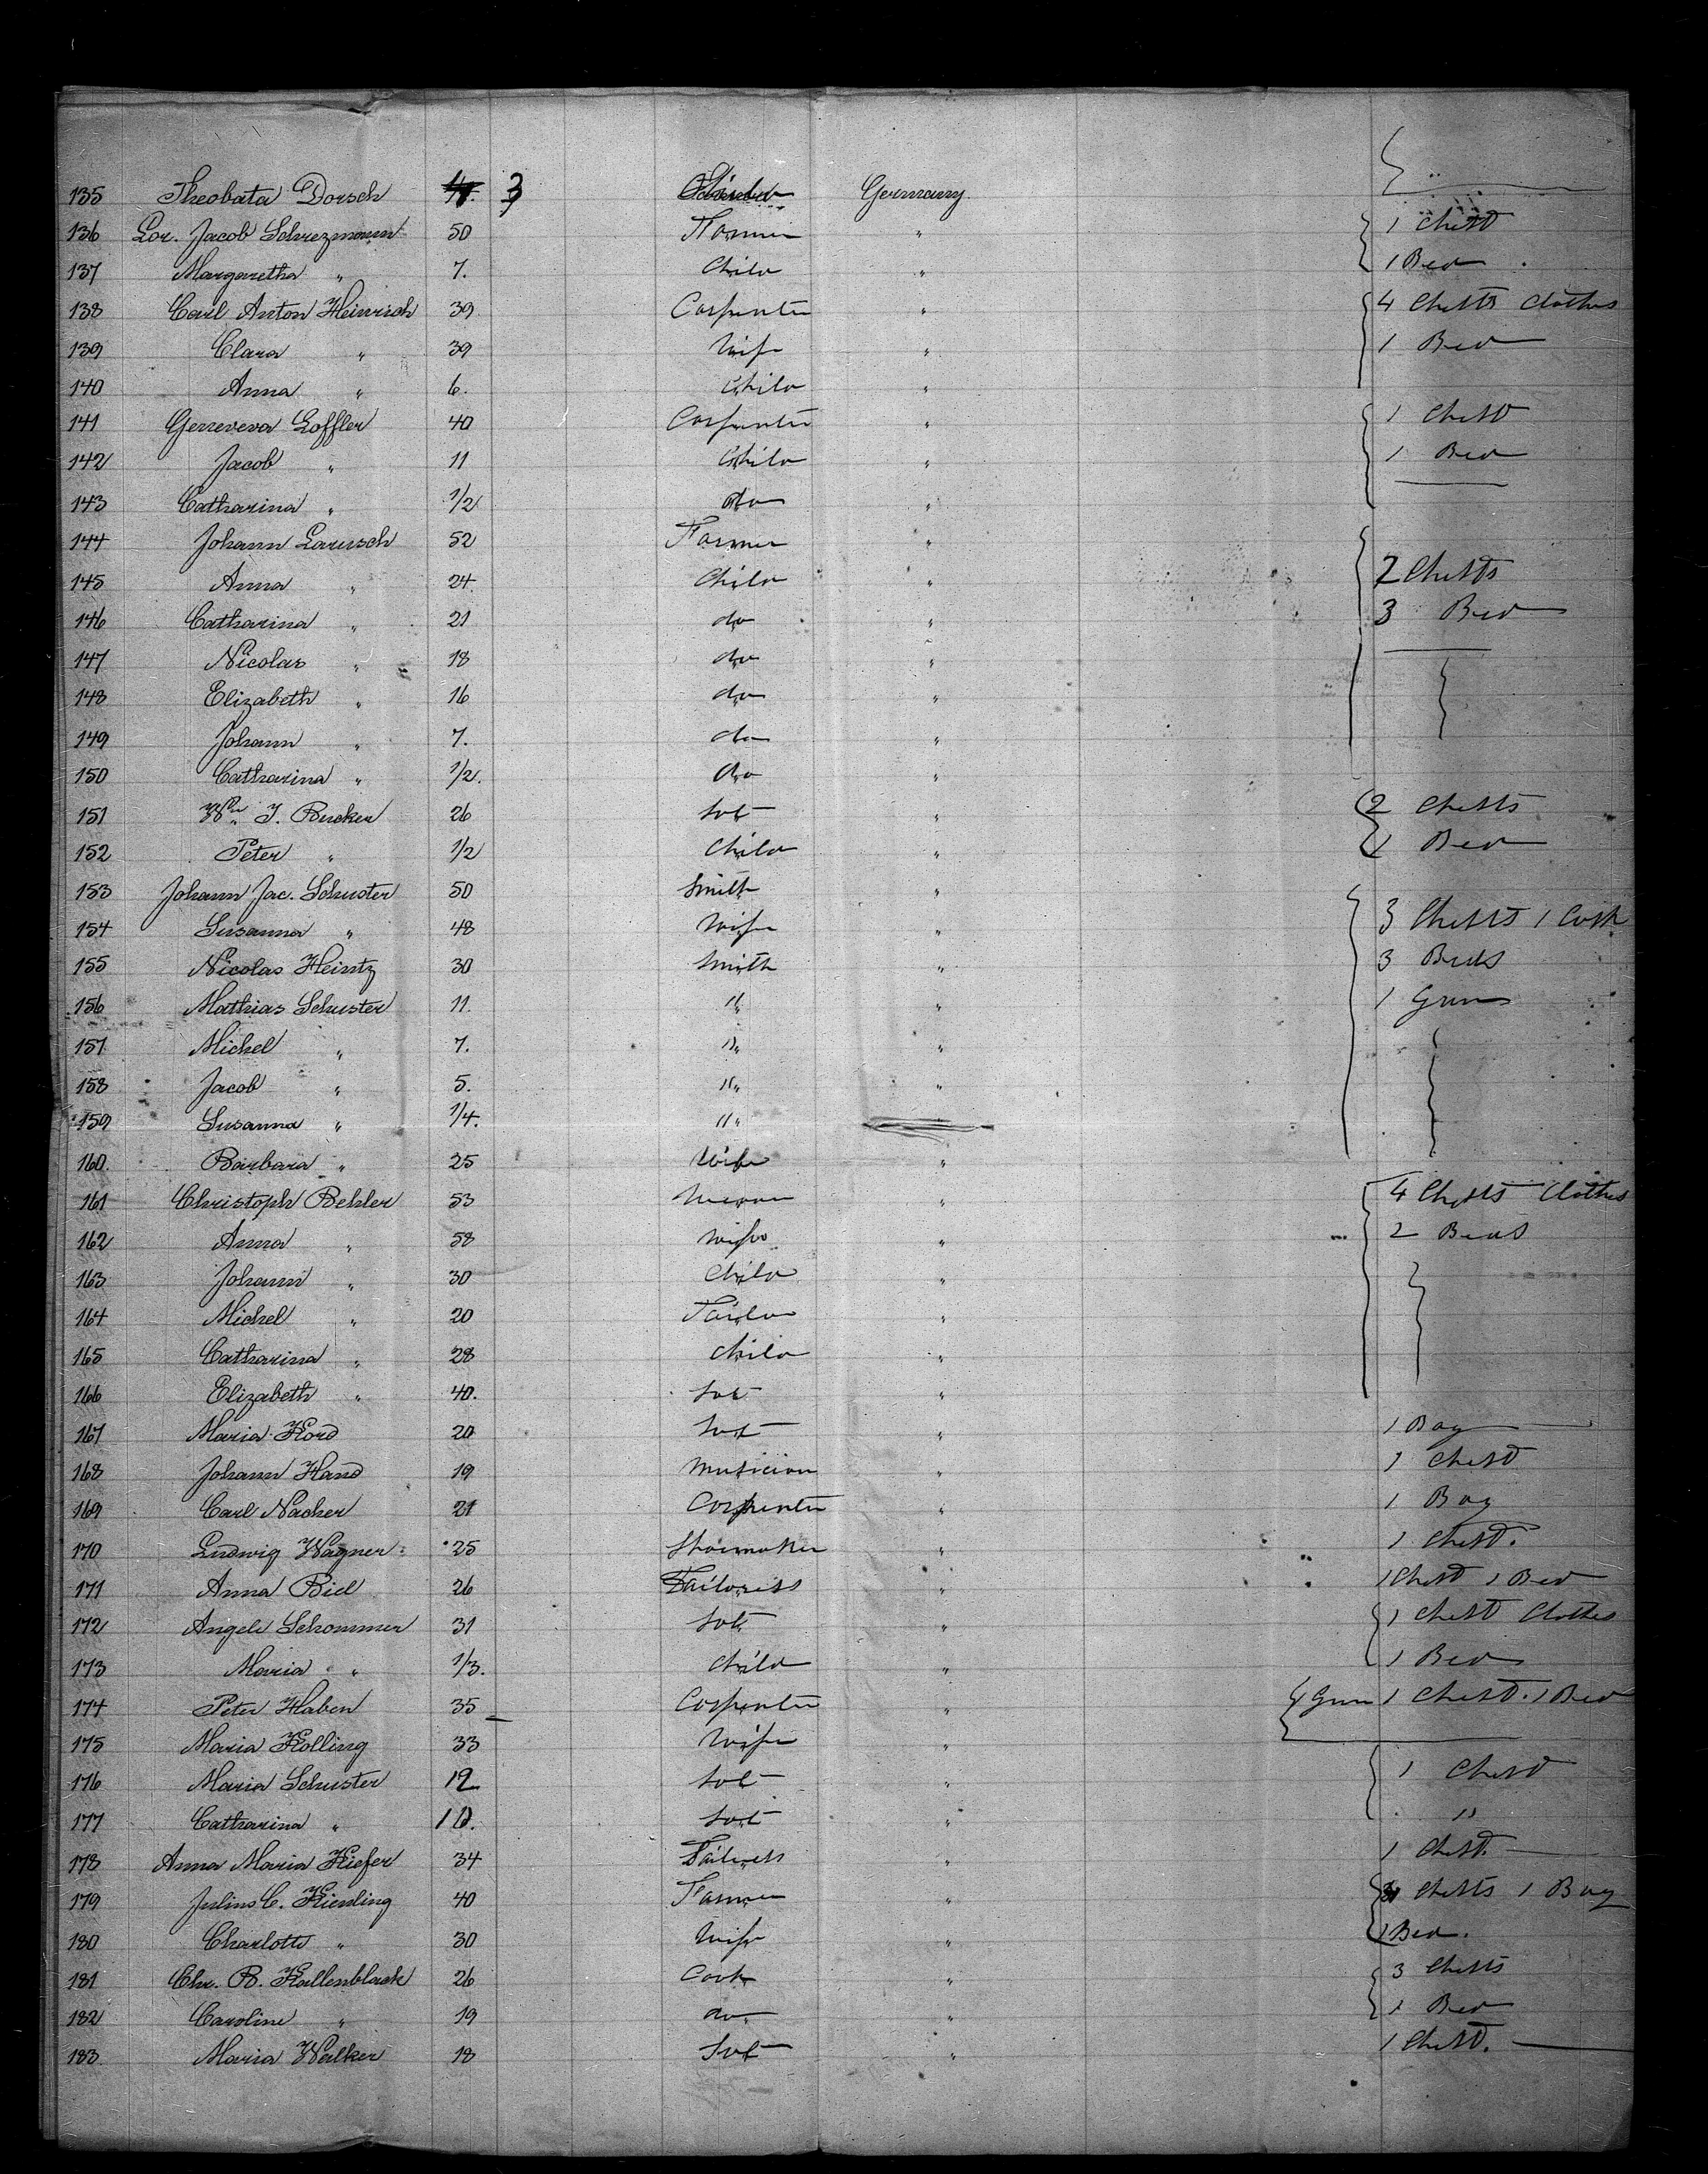 135 Theobata Dorsch 3 Germany
136 Lor. Jacob Schrezmann 50 Farmer " 1 Chest
137 Margaretha " 7. Child " 1 Bed
138 Carl Anton Heinrich 39 Carpenter " 4 Chests Clothes
139 Clara " 39 Wife " 1 Bed
140 Anna " 6. Child "
141 Genneveva Loffler 40 Carpenter " 1 Chest
142 Jacob " 11 Child " 1 Bed
143 Catharina " 1/2 do "
144 Johann Laursch 52 Farmer "
145 Anna " 24. Child " 2 Chests
146 Catharina " 21 do " 3 Bed
147 Nicolas " 18 do "
148 Elizabeth " 16 do "
149 Johann " 7. do "
150 Catharina " 1/2. do "
151 Wm J. Becker 26 Svt " 2 Chests
152 Peter " 1/2 Child " 1 Bed
153 Johann Jac. Schuster 50 Smith "
154 Susanna " 48 Wife " 3 Chests 1 Cask
155 Nicolas Heintz 30 Smith " 3 Beds
156 Mathias Schuster 11. " " 1 Gun
157 Michel " 7. " "
158 Jacob " 5. " "
159 Susanna " 1/4. "
160. Barbara " 25 Wife "
161 Christoph Behler 53 " 4 Chests Clothes
162 Anna " 58 Wife " 2 Beds
163 Johann " 30 Child "
164 Michel " 20 Tailor "
165 Catharina " 28 Child "
166 Elizabeth " 40. Svt "
167 Maria Kord 20 Svt " 1 Bag
168 Johann Hand 19 Musician " 1 Chest
169 Carl Nacher 21 Carpenter " 1 Bag
170 Ludwig Wagner 25 Shoemaker " 1 Chest.
171 Anna Biel 26 Tailoress " 1 Chest 1 Bed
172 Angele Schommer 31 Svt " 1 Chest Clothes
173 Maria " 1/3. Child " 1 Bed
174 Peter Haben 35 Carpenter " Gun 1 Chest. 1 Bed
175 Maria Kolling 33 Wife "
176 Maria Schuster 12 Svt " 1 Chest
177 Catharina " 10. Svt " "
178 Anna Maria Kiefer 34 Tailoress " 1 Chest.
179 Julius C. Kienling 40 Farmer " Chests 1 Bag
180 Charlotte " 30 Wife " 1 Bed.
181 Chr. B. Kallenblack 26 Cook " 3 Chests
182 Caroline " 19 do " 1 Bed
183 Maria Walker 18 Svt " 1 Chest.